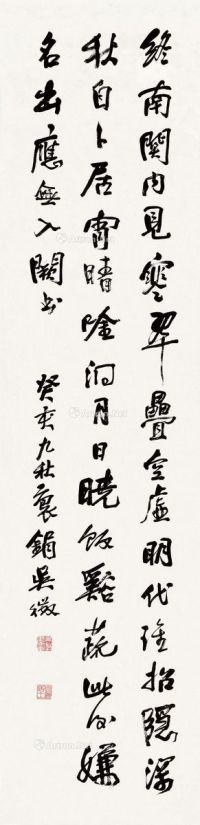 終南關內見寒翠疊空虛明代雖招隱深
秋自卜居宵晴陰洞月日曉飯谿蔬此外嫌
名出應無入闕書 癸亥九秋褱鋗吳徵